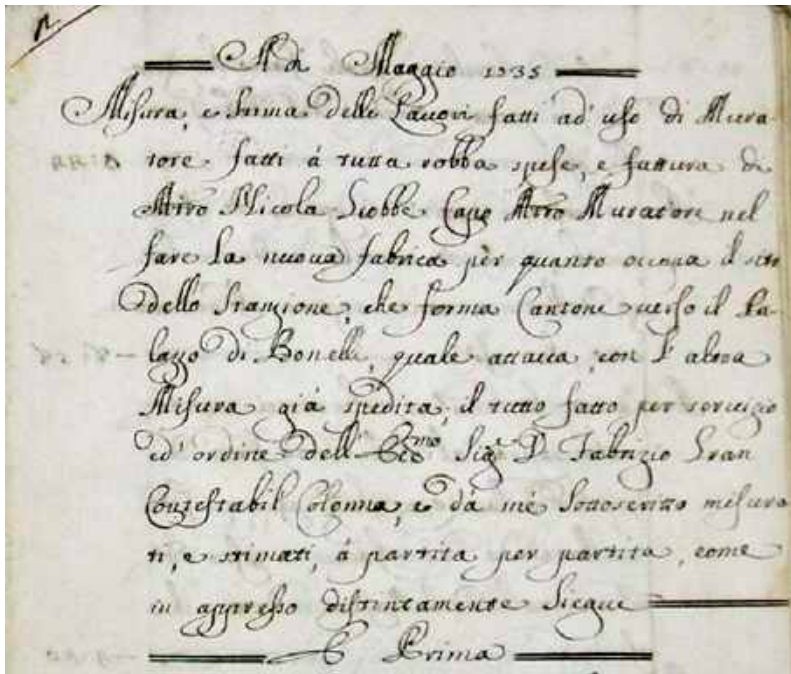 A dì Maggio 1735
Misura, e stima delli Lavori fatti ad' uso di Mura-
tore fatti à tutta robba spese, e fattura di
Mro Nicola Giobbe Capo Mro Muratore nel
fare la nuova fabrica per quanto occupa il sito
dello Stanzione, che forma Cantone verso il Pa-
lazzo di Bonelli, quale attacca con l' altra
Misura già spedita, il tutto fatto per servizio
ed' ordine dell' Ecc.mo Sig.r D. Fabrizio Gran
Contestabil Colonna, e da mè sottoscritto misura-
ti, e stimati, à partita per partita, come
in appresso distintamente siegue
E Prima